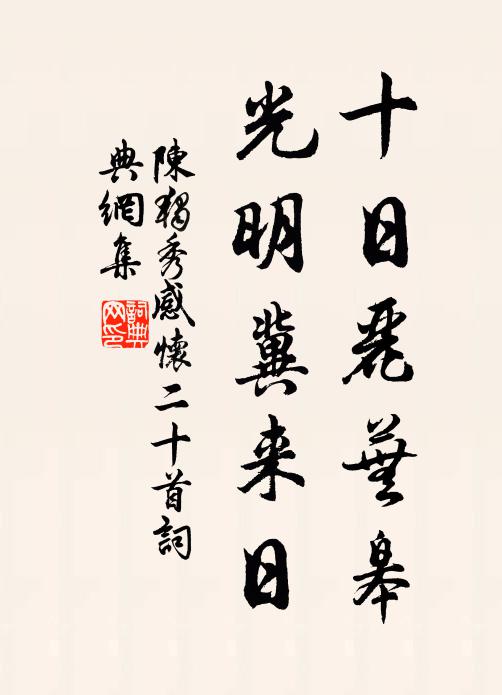 十日麗蕪皋
光明冀来日
陳獨秀感懷二十首詞
典網集
詞典
网印